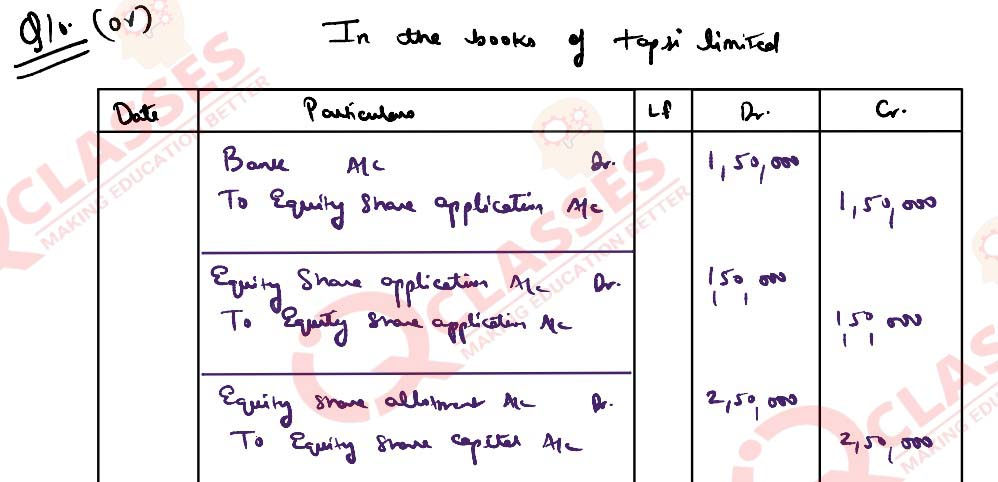 Q10. (or)
In the books of tapsi limited
Date Particulars Lf Dr. Cr.
Bank A/c Dr. 1,50,000
To Equity Share application A/c 1,50,000
Equity Share application A/c Dr. 1,50,000
To Equity Share application A/c 1,50,000
Equity share allotment A/c Dr. 2,50,000
To Equity share capital A/c 2,50,000
CLASSES
MAKING EDUCATION BETTER
CLASSES
MAKING EDUCATION BETTER
CLASSES
MAKING EDUCATION BETTER